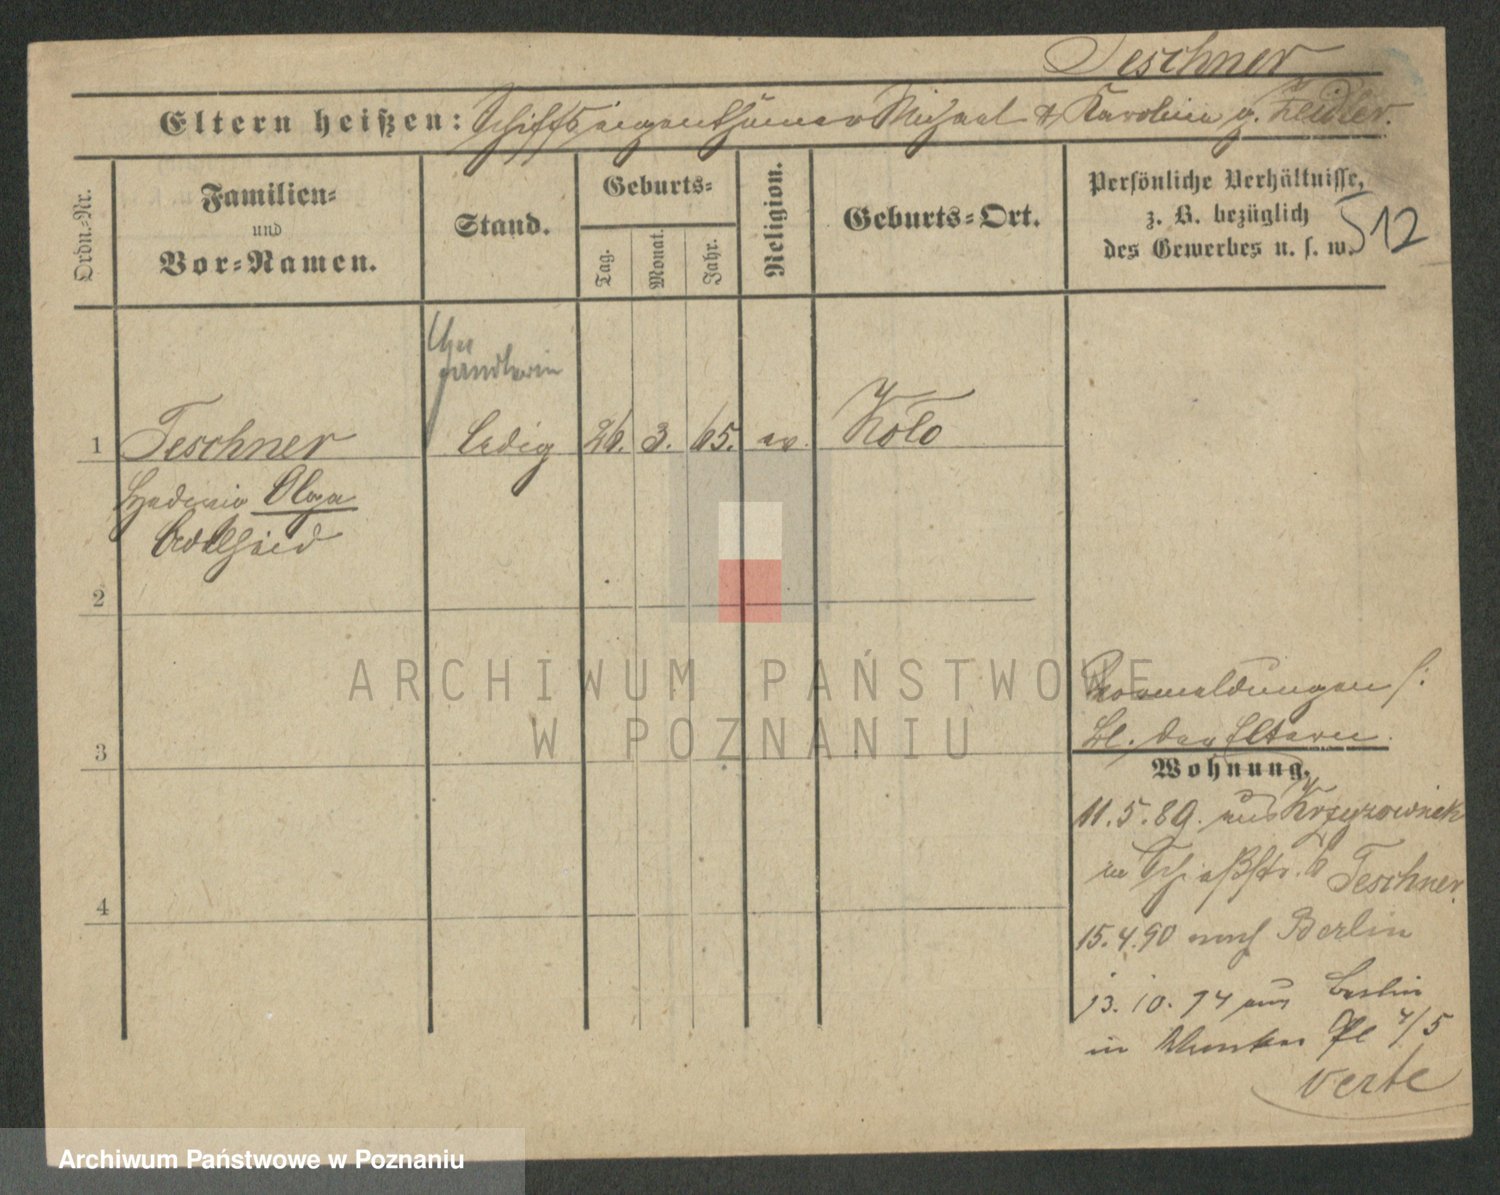 Teschner
Eltern heißen: Schiffseigenthümer Michael & Karoline g. Zeidler.
Ordn.-Nr.
Familien-
und
Vor-Namen.
Stand.
Geburts-
Tag.
Monat.
Jahr.
Religion.
Geburts-Ort.
Persönliche Verhältnisse,
z. B. bezüglich
des Gewerbes u. s. w.
512
händlerin
1 Teschner ledig 26. 3. 65. ev. Koło
Hedwig Olga
Adelheid
2
3
4
Vormeldungen s:
Bl. der Eltern.
Wohnung.
11.5.89. aus Krzyzownik
in Schießstr. 6 Teschner
15.4.90 nach Berlin
13.10.94 aus Berlin
in Pl 4/5
verte
ARCHIWUM PAŃSTWOWE
W POZNANIU
Archiwum Państwowe w Poznaniu